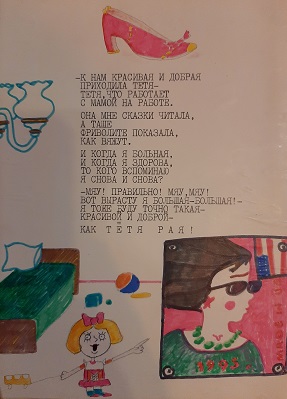 -К НАМ КРАСИВАЯ И ДОБРАЯ
ПРИХОДИЛА ТЕТЯ-
ТЕТЯ,ЧТО РАБОТАЕТ
С МАМОЙ НА РАБОТЕ.
ОНА МНЕ СКАЗКИ ЧИТАЛА,
А ТАШЕ
ФРИВОЛИТЕ ПОКАЗАЛА,
КАК ВЯЖУТ.
И КОГДА Я БОЛЬНАЯ,
И КОГДА Я ЗДОРОВА,
ТО КОГО ВСПОМИНАЮ
Я СНОВА И СНОВА?
-МЯУ! ПРАВИЛЬНО! МЯУ,МЯУ!
ВОТ ВЫРАСТУ Я БОЛЬШАЯ-БОЛЬШАЯ!-
Я ТОЖЕ БУДУ ТОЧНО ТАКАЯ-
КРАСИВОЙ И ДОБРОЙ-
КАК ТЁТЯ РАЯ!